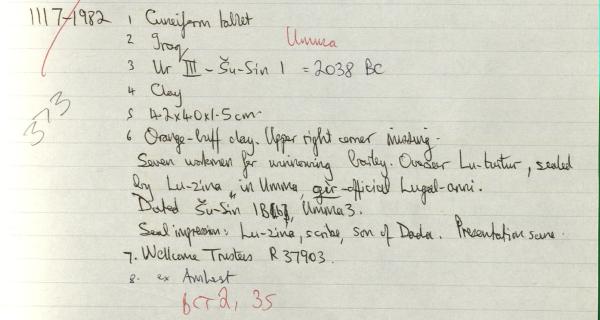 1117-1982
1 Cuneiform tablet
2 Iraq Umma
3 Ur III - Šu-Sin 1 = 2038 BC
4 Clay
5 4·2x4·0x1·5cm·
373
6 Orange-buff clay. Upper right corner missing.
Seven workmen for winnowing barley. Overseer, sealed
by Lu-zina, in Umma, gìr-official Lugal-
Dated Šu-Sin Umma 3.
Seal impression: Lu-zina, scribe, son of Dada. Presentation scene.
7. Wellcome Trustees R 37903.
8. ex Amherst
BCT 2, 35